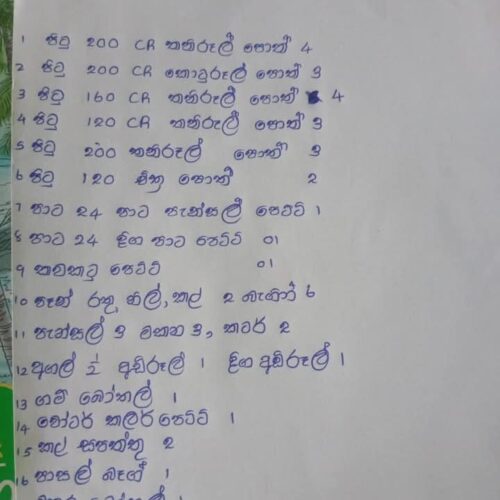 1 පිටු 200 CR තනිරූල් පොත් 4
2 පිටු 200 CR කොටුරූල් පොත් 3
3 පිටු 160 CR තනිරූල් පොත් 4
4 පිටු 120 CR තනිරූල් පොත් 3
5 පිටු 200 තනිරූල් පොත් 3
6 පිටු 120 චිත්‍ර පොත් 2
7 පාට 24 පාට පැන්සල් පෙට්ටි 1
8 පාට 24 දිග පාට පෙට්ටි 01
9 කවකටු පෙට්ටි 01
10 පෑන් රතු, නිල්, කල් 2 බැගින් 6
11 පැන්සල් 3 මකන 3, කටර් 2
12 අගල් 1/2 අඩිරූල් 1 දිග අඩිරූල් 1
13 ගම් බෝතල් 1
14 වෝටර් කලර් පෙට්ටි 1
15 කල් සපත්තු 2
16 පාසල් බෑග් 1